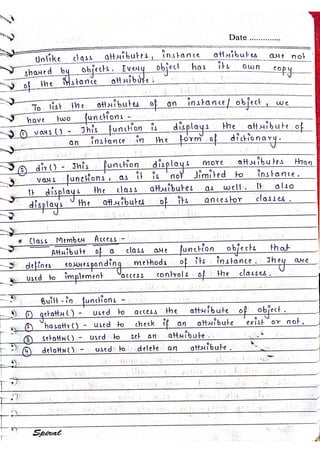 Date ..............
Unlike class attributes, instance attributes are not
shared by objects. Every object has its own copy
of the instance attribute.
To list the attributes of an instance/object, we
have two functions -
① vars() - This function is displays the attribute of
an instance in the form of dictionary.
② dir() - This function displays more attributes than
vars function, as it is not limited to instance.
It displays the class attributes as well. It also
displays the attributes of its ancestor classes.
* Class Member Access -
Attribute of a class are function objects that
defines corresponding methods of its instance. They are
used to implement access controls of the classes.
Built-in functions -
① getattr() - used to access the attribute of object.
② hasattr() - used to check if an attribute exist or not.
③ setattr() - used to set an attribute.
④ delattr() - used to delete an attribute.
Spiral